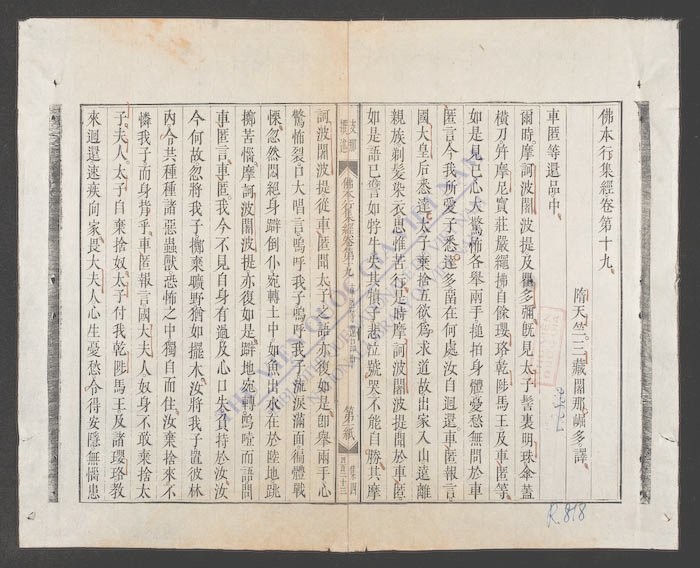 佛本行集經卷第十九
隋天竺三藏闍那崛多譯
車匿等還品中
爾時摩訶波闍波提及瞿多彌既見太子髻裏明珠傘蓋
橫刀并摩尼寶莊嚴蠅拂自餘瓔珞乾陟馬王及車匿等
如是見已心大驚怖各舉兩手搥拍身體憂愁無問於車
匿言今我所愛子悉達多留在何處汝自迴還車匿報言
國大皇后悉達太子棄捨五欲爲求道故出家入山遠離
親族剃髮染衣思惟苦行是時摩訶波闍波提聞於車匿
如是語已譬如牸牛失其犢子悲泣號哭不能自勝其摩
支那撰述
佛本行集經卷第十九
第一紙
訶波闍波提從車匿聞太子語亦復如是卽舉兩手心
驚怖裂口大唱言嗚呼我子嗚呼我子流淚滿面徧體戰
慄忽然悶絕身躃倒仆宛轉土中如魚出水在於陸地跳
擲苦惱摩訶波闍波提亦復如是躃地宛轉嗚噎而語問
車匿言車匿我今不見自身有過及心口失負持於汝汝
今何故忽將我子擲棄曠野猶如擺木汝將我子置彼林
內令共種種諸惡蟲獸恐怖之中獨自而住汝棄捨來不
憐我子而身背乎車匿報言國大夫人奴身不敢棄捨太
子夫人太子自棄捨奴太子付我乾陟馬王及諸瓔珞教
來迴還速疾向家畏大夫人心生憂愁令得安隱無惱患
R.818